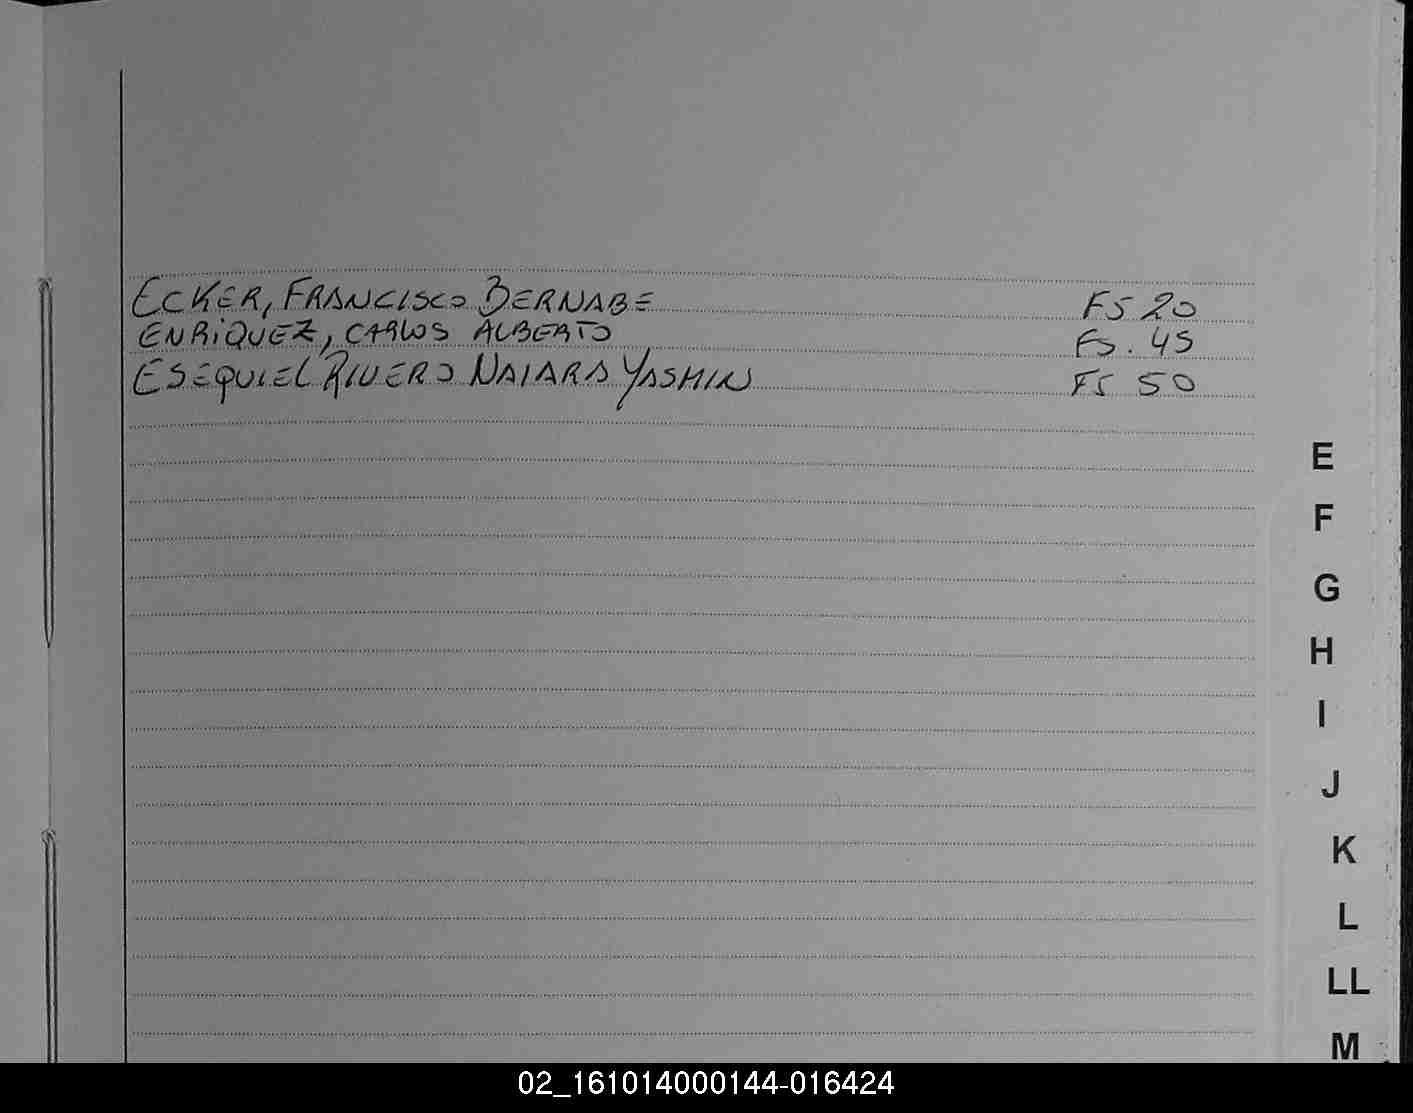 ECKER, FRANCISCO BERNABE FS 20
ENRIQUEZ, CARLOS ALBERTO FS. 45
ESEQUIEL RIVERO NAIARA YASMIN FS 50
E
F
G
H
I
J
K
L
LL
M
02_161014000144-016424